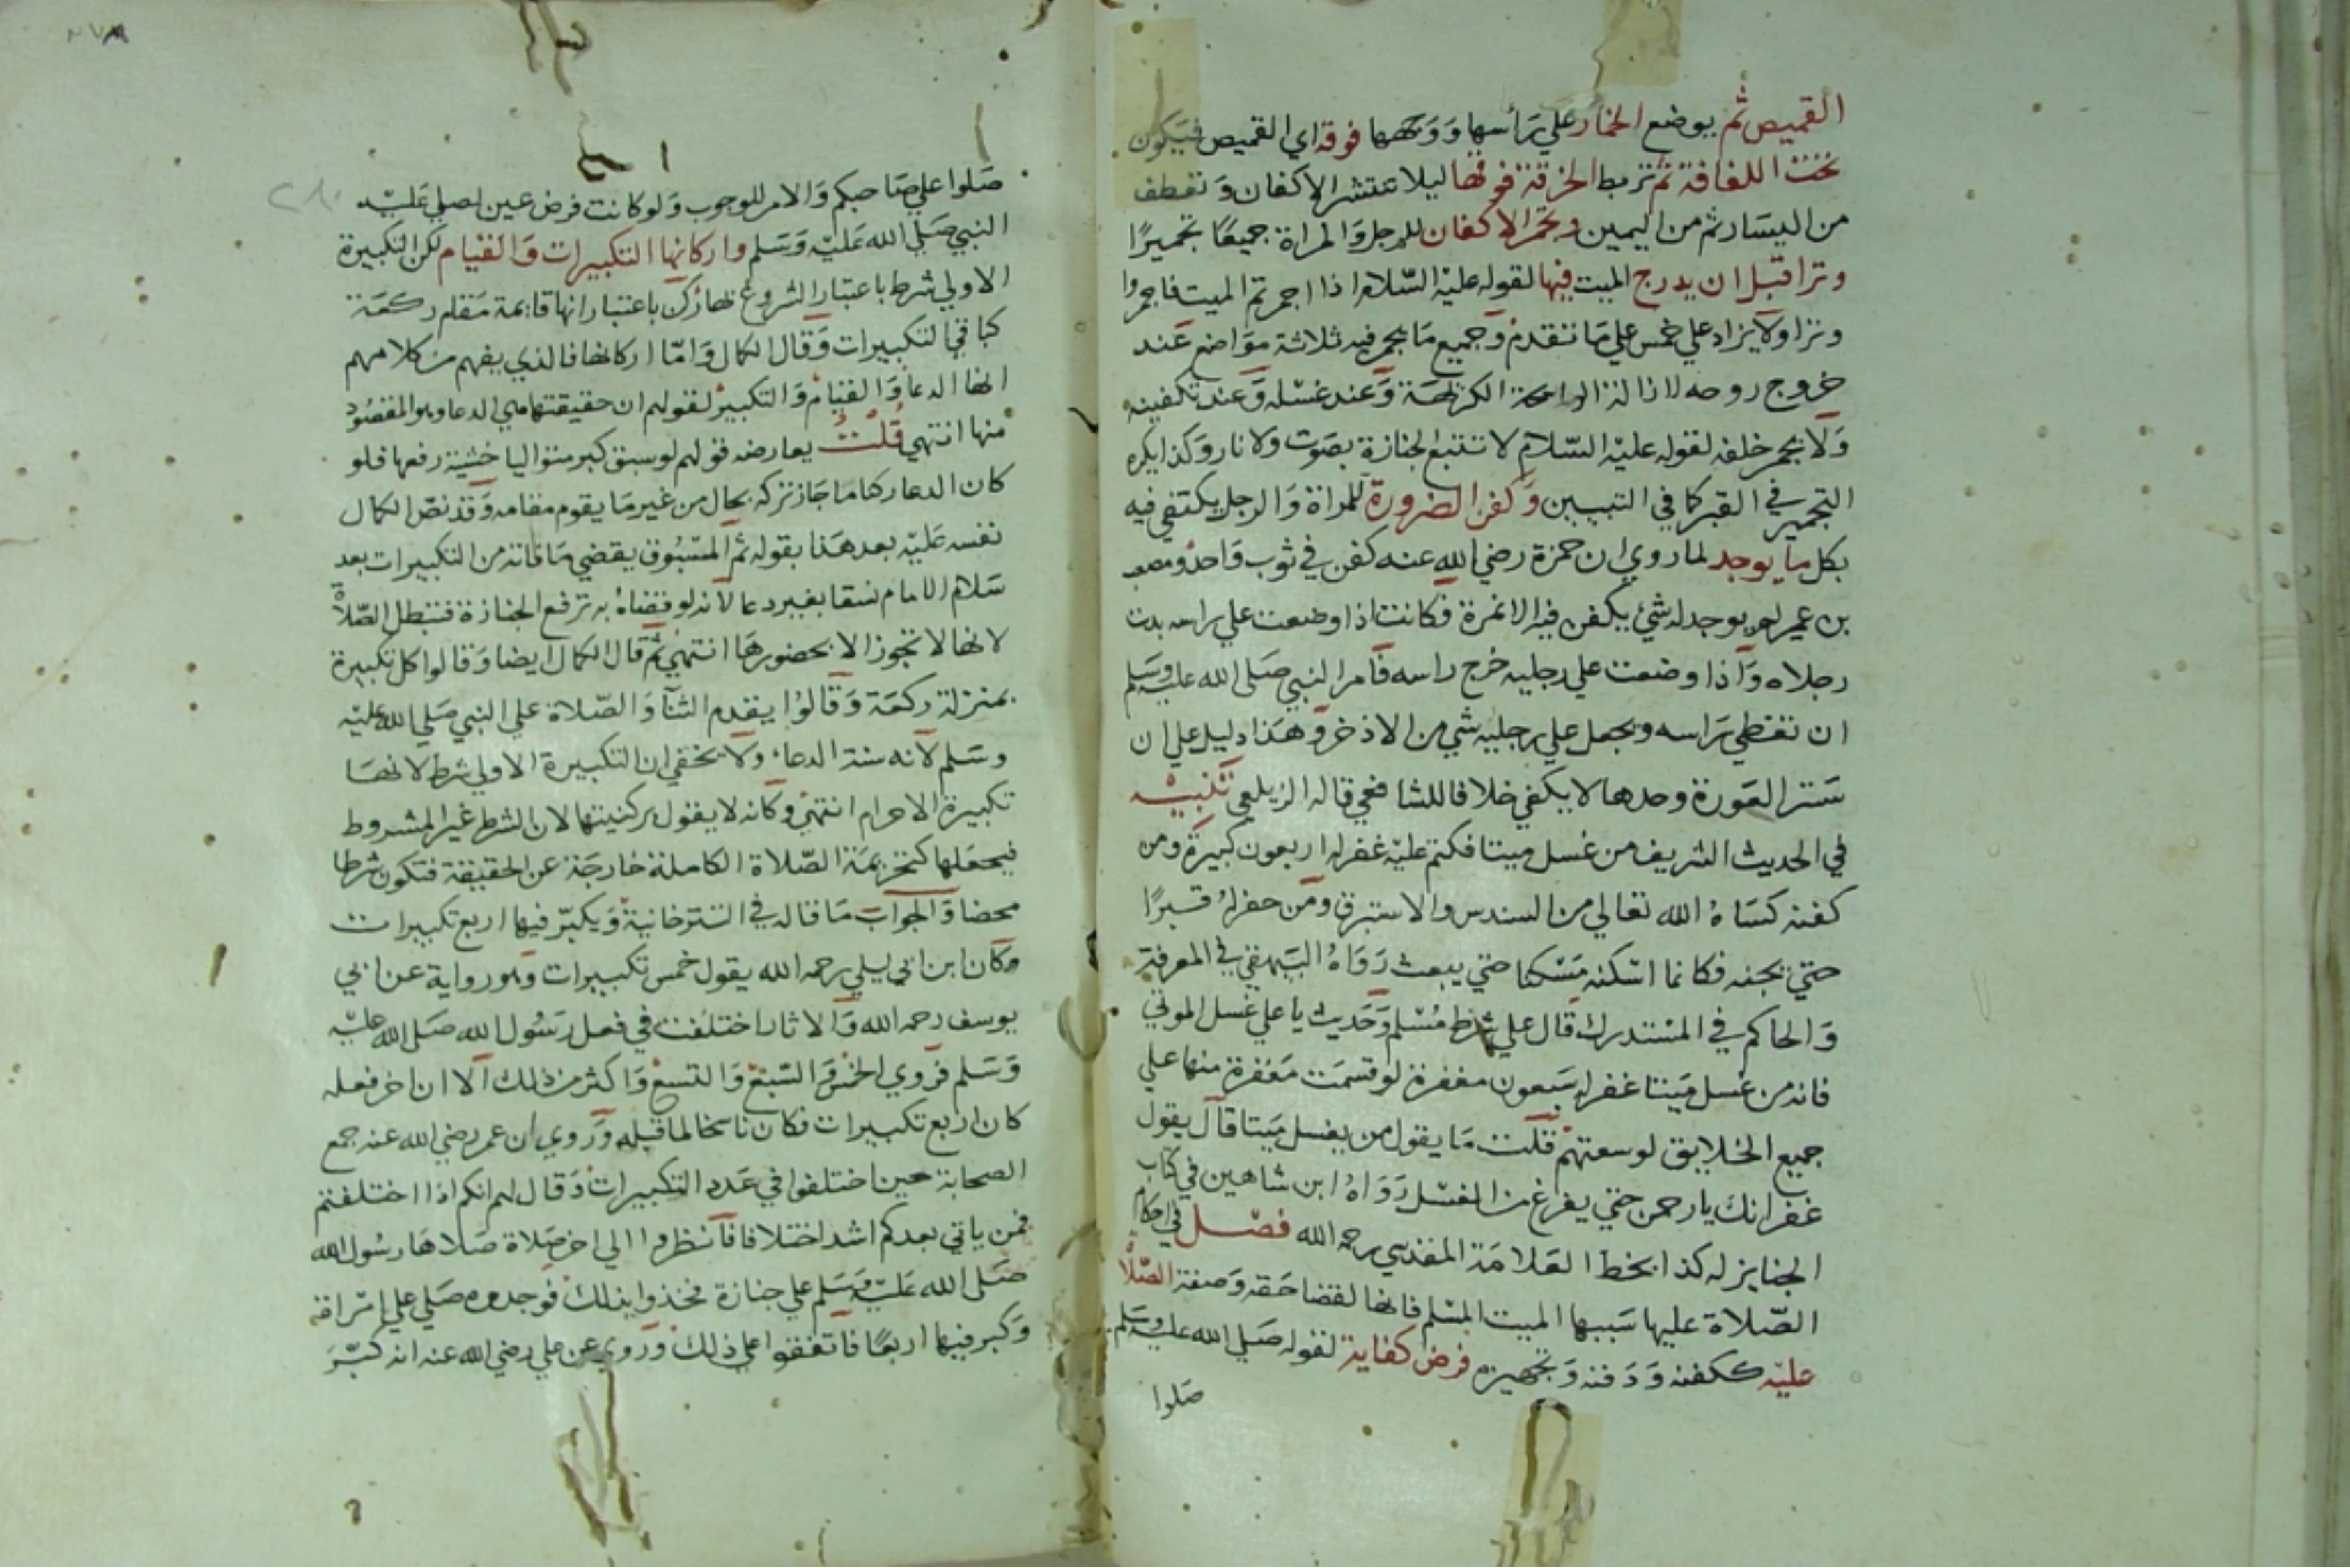 القميص ثم يوضع الخمار علي رأسها ووجهها فوقه اي القميص فيكون
تحت اللفافة ثم تربط الخرقة فوقها ليلا ينتشر الاكفان وتعطف
من اليسار ثم من اليمين وتجمر الاكفان للرجل والمراة جميعا تجميرا
وترا قبل ان يدرج الميت فيها لقوله عليه السلام اذا اجمرتم الميت فاجمروا
وترا ولا يزاد علي خمس علي ما تقدم وجميع ما يجمر فيه ثلاثة مواضع عند
خروج روحه لازالة الرايحة الكريهة وعند غسله وعند تكفينه
ولا يجمر خلفه لقوله عليه السلام لا تتبع الجنازة بصوت ولا نار وكذا يكره
التجمير في القبر كما في التبيين وكفن الضرورة للمراة والرجل يكتفي فيه
بكل ما يوجد لما روي ان حمزة رضي الله عنه كفن في ثوب واحد ومصعب
بن عمير لم يوجد له شئ يكفن فيه الا نمرة فكانت اذا وضعت علي راسه بدت
رجلاه واذا وضعت علي رجليه خرج راسه فامر النبي صلي الله عليه وسلم
ان تغطي راسه ويجعل علي رجليه شي من الاذخر وهذا دليل علي ان
ستر العورة وحدها لا يكفي خلافا للشافعي قاله الزيلعي تنبيه
في الحديث الشريف من غسل ميتا فكتم عليه غفر له اربعون كبيرة ومن
كفنه كساه الله تعالي من السندس والاستبرق ومن حفر له قبرا
حتي يجنه فكانما اسكنه مسكنا حتي يبعث رواه البيهقي في المعرفة
والحاكم في المستدرك قال علي شرط مسلم وحديث يا علي غسل الموتي
فانه من غسل ميتا غفر له سبعون مغفرة لو قسمت مغفرة منها علي
جميع الخلايق لوسعتهم قلت ما يقول من يغسل ميتا قال يقول
غفرانك يا رحمن حتي يفرغ من الغسل رواه ابن شاهين في كتاب
الجنايز له كذا بخط العلامة المقدسي رحمه الله فصل في احكام
الصلاة عليها سببها الميت المسلم فانها لقضا حقه وصفة الصلاة
عليه ككفنه ودفنه وتجهيزه فرض كفاية لقوله صلي الله عليه وسلم
صلوا
صلوا علي صاحبكم والامر للوجوب ولو كانت فرض عين لصلي عليه
النبي صلي الله عليه وسلم واركانها التكبيرات والقيام لكن التكبيرة
الاولي شرط باعتبار الشروع بها ركن باعتبار انها قايمة مقام ركعة
كباقي التكبيرات وقال الكمال واما اركانها فالذي يفهم من كلامهم
انها الدعا والقيام والتكبير لقولهم ان حقيقتها هي الدعا وهو المقصود
منها انتهي قلت يعارضه قولهم لو سبق كبر متواليا خشية رفعها فلو
كان الدعا ركنا ما جاز تركه بحال من غير ما يقوم مقامه وقد نص الكمال
نفسه عليه بعد هذا بقوله ثم المسبوق يقضي ما فاته من التكبيرات بعد
سلام الامام نسقا بغير دعا لانه لو قضاه به ترفع الجنازة فتبطل الصلاة
لانها لا تجوز الا بحضورها انتهي ثم قال الكمال ايضا وقالوا كل تكبيرة
بمنزلة ركعة وقالوا يقدم الثنا والصلاة علي النبي صلي الله عليه
وسلم لانه سنة الدعا ولا يخفي ان التكبيرة الاولي شرط لانها
تكبيرة الاحرام انتهي وكانه لا يقول بركنيتها لان الشرط غير المشروط
فيجعلها كتحريمة الصلاة الكاملة خارجة عن الحقيقة فتكون شرطا
محضا والجواب ما قاله في التترخانية ويكبر فيها اربع تكبيرات
وكان ابن ابي ليلي رحمه الله يقول خمس تكبيرات وهو رواية عن ابي
يوسف رحمه الله والاثار اختلفت في فعل رسول الله صلي الله عليه
وسلم فروي الخمس والسبع والتسع واكثر من ذلك الا ان اخر فعله
كان اربع تكبيرات فكان ناسخا لما قبله وروي ان عمر رضي الله عنه جمع
الصحابة حين اختلفوا في عدد التكبيرات وقال لهم انكم اذا اختلفتم
فمن ياتي بعدكم اشد اختلافا فانظروا الي اخر صلاة صلاها رسول الله
صلي الله عليه وسلم علي جنازة فخذوا بذلك فوجدوه صلي علي امراة
وكبر فيها اربعا فاتفقوا علي ذلك وروي عن علي رضي الله عنه انه كبر